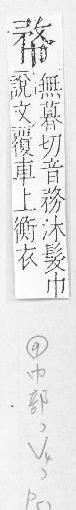 㡔
無暮切音務沐髮巾
說文覆車上衡衣
⑨ 巾部、V4、